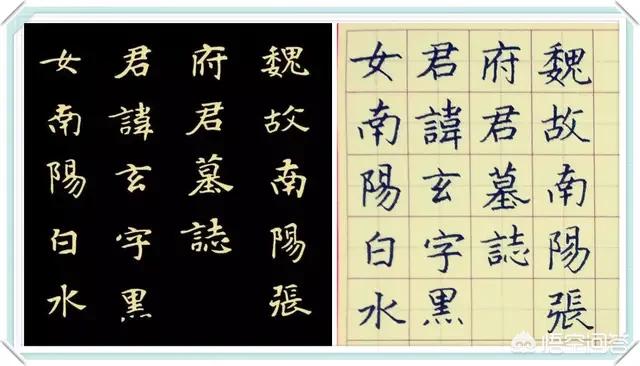 魏故南陽張
府君墓誌
君諱玄字黑
女南陽白水
魏故南陽張
府君墓誌
君諱玄字黑
女南陽白水
悟空问答